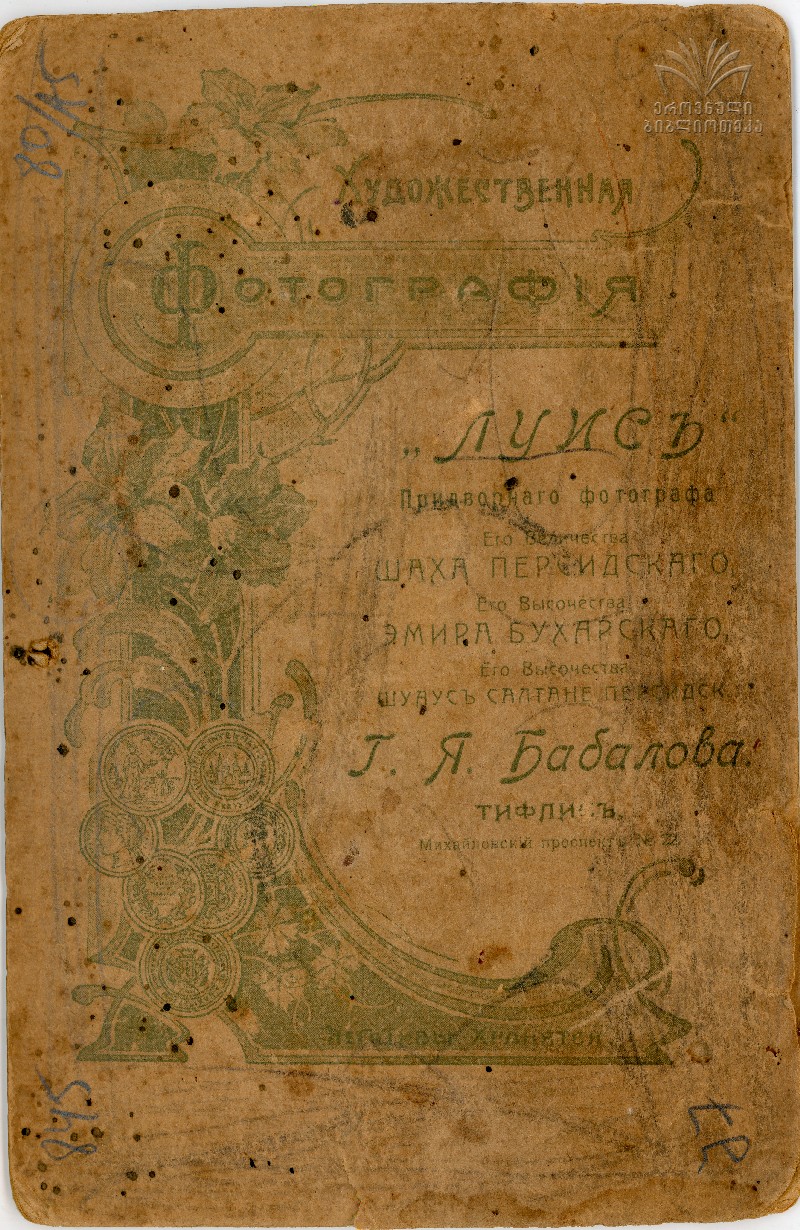 80/15
ეროვნული
ბიბლიოთეკა
Художественная
Фотографія
„ЛУИСЪ“
Придворнаго фотографа
Его Величества
ШАХА ПЕРСИДСКАГО,
Его Высочества
ЭМИРА БУХАРСКАГО,
Его Высочества
ШУАУСЪ САЛТАНЕ ПЕРСИДСК.
Г. Я. Бабалова.
ТИФЛИСЪ,
Михайловскій проспектъ № 22
Негативы хранятся.
845